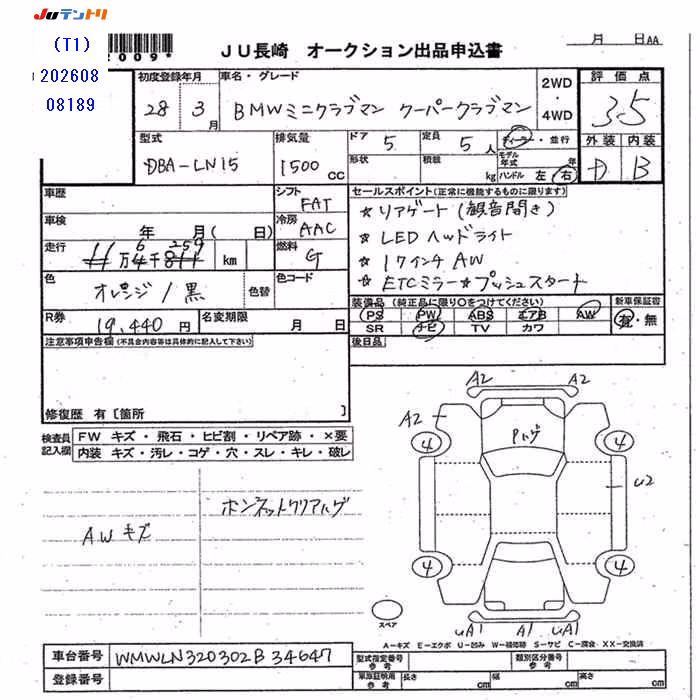 JUテントリ
(T1)
2009*
202608
08189
JU長崎 オークション出品申込書
月 日AA
初度登録年月
28 3月
車名・グレード
BMWミニクラブマン クーパークラブマン
2WD
・
4WD
評価点
3.5
外装 内装
D B
型式
DBA-LN15
排気量
1500 CC
ドア 5
定員 5人
ディーラー・並行
形状
積載 kg
モデル年式 年
ハンドル 左 右
車歴
車検 年 月( 日)
走行
万 千 km
シフト FAT
冷房 AAC
燃料 G
セールスポイント(正常に機能するものに限ります)
☆リアゲート(観音開き)
☆LEDヘッドライト
☆17インチAW
☆ETCミラー☆プッシュスタート
色
オレンジ/黒
色替
色コード
R券 19,440円
名変期限 月 日
装備品(純正品に限り○をつけてください)
PS PW ABS エアB AW
SR ナビ TV カワ
新車保証書
有・無
後日品
注意事項申告欄(不具合内容等は具体的に記入して下さい)
修復歴 有[箇所 ]
検査員記入欄
FW キズ・飛石・ヒビ割・リペア跡・×要
内装 キズ・汚レ・コゲ・穴・スレ・キレ・破レ
AWキズ
ボンネットクリアハゲ
A2 A2
A2
Pハゲ
4 4
U2
4 4
スペア
UA1 A1 UA1
A-キズ E-エクボ U-凹み W-補修跡 S-サビ C-腐食 XX-交換済
車台番号 WMWLN320302B34647
登録番号
型式指定番号 参考
類別区分番号 参考
車庫証明用 参考
長さ cm
幅 cm
高さ cm